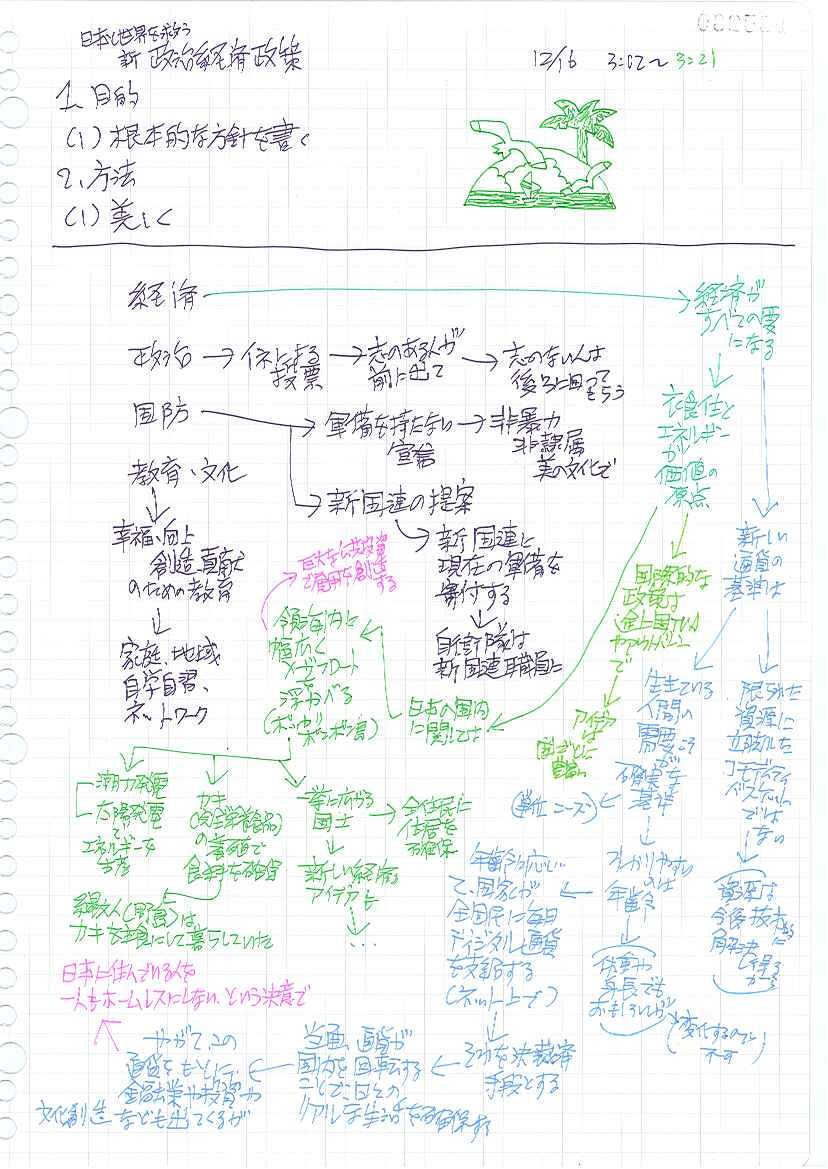 日本と世界を救う
新 政治経済政策
12/16 3:02～3:21
1. 目的
(1) 根本的な方針を書く
2. 方法
(1) 美しく
経済
経済が
すべての要
になる
政治
投票
志のある人が
前に出て
志のない人は
後ろに回って
もらう
国防
軍備を持たない
宣言
非暴力
非隷属
美の文化で
衣食住と
エネルギーが
価値の
原点
教育・文化
新国連の提案
幸福、向上
創造、貢献
のための教育
巨大な公共投資
で雇用を創造する
新国連に
現在の軍備を
寄付する
新しい
通貨の
基準は
国際的な
政策は
途上国
で
家庭、地域
自学自習、
ネットワーク
領海内に
幅広く
メガフロート
を
浮かべる
自衛隊は
新国連職員に
日本の国内
に関しては
アイデアは
国ごとに
生きている
人間の
需要こそ
が
確実な
基準
(単位 ニーズ)
限られた
資源に
立脚した
コモディティ
バスケット
ではない
潮力発電
太陽発電
で
エネルギーを
生産
カキ
(完全栄養食品)
の養殖で
食料を確保
一挙に広がる
国土
全住民に
住居を
確保
新しい経済
アイデアと
・・・
縄文人(野蛮)は
カキを主食にして暮らしていた
年齢に応じ
て、国家が
全国民に毎日
デジタル通貨
を支給する
(ネット上で)
わかりやすい
のは
年齢
体重や
身長でも
おもしろいが
(変化するので
不可)
資源は
今後技術
解決
し得る
から
日本に住んでいる人を
一人もホームレスにしない、という決意で
やがて、この
通貨をもとに、
金融業や投資や
文化創造なども出てくるが
当面、通貨が
国内を回転する
ことで、日々の
リアルな生活を確保する
それを決裁
手段とする